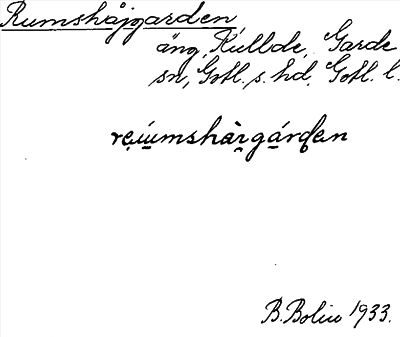 Rumshåjgarden
äng, Kullbde, Garde
sn, Gotl. s. hd, Gotl. l.
reúumshàrgárden
B. Bolin 1933.